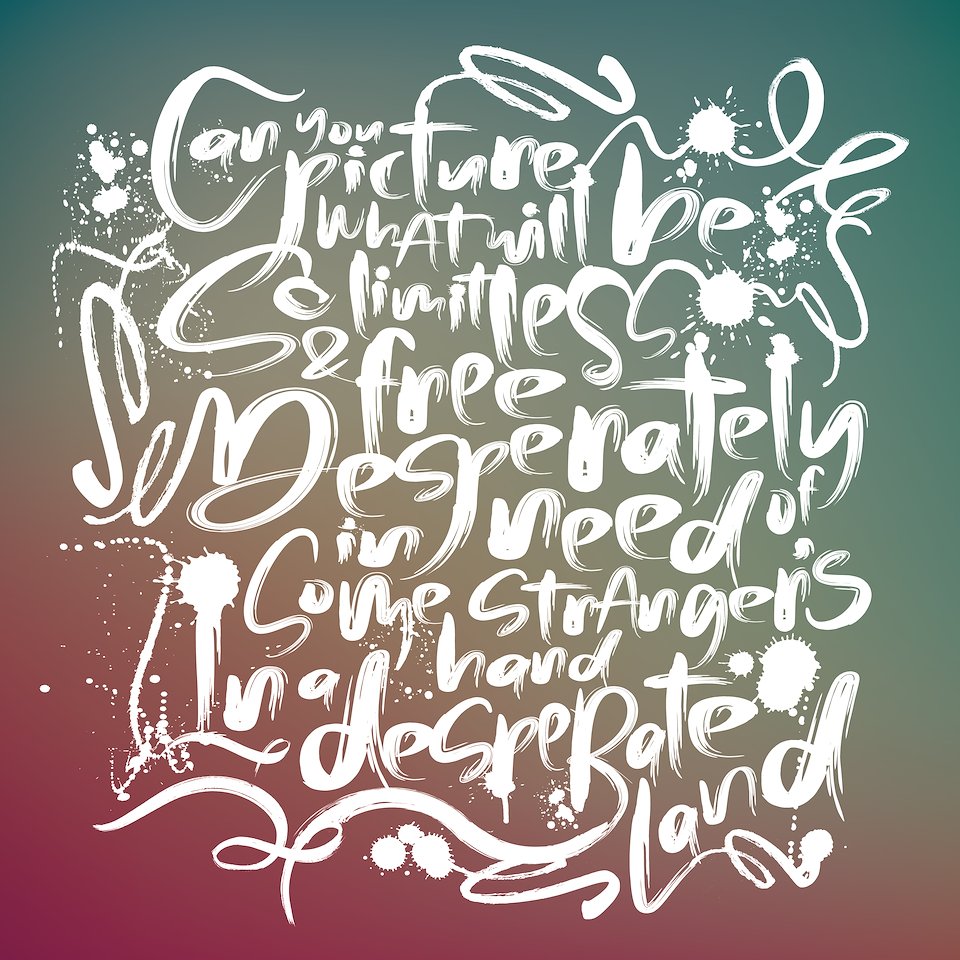 Can you
picture
what will be
So limitless
& free
Desperately
in need of
Some stranger's
hand
In a
desperate
land